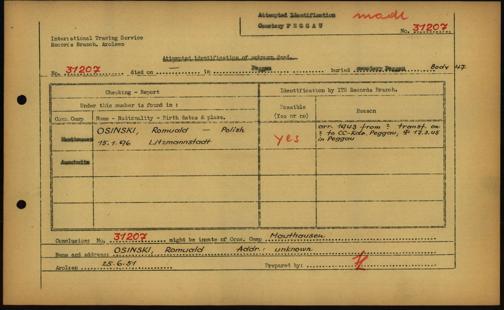 Attempted Identification made
Cemetery PEGGAU
No. 31207
International Tracing Service
Records Branch, Arolsen
Attempted identification of unknown dead.
No. 31207 died on — in Peggau buried cemetery Peggau Body 47.
Checking - Report
Identification by ITS Records Branch.
Under this number is found in :
Possible
(Yes or no)
Reason
Conc. Camp
Name - Nationality - Birth date & place.
Mauthausen
OSINSKI, Romuald — Polish
15.1.96 Litzmannstadt
yes
arr. 1943 from ? transf. on
? to CC-Kdo. Peggau,
in Peggau
Auschwitz
Conclusion: No. 31207 might be inmate of Conc. Camp Mauthausen
Name and address: OSINSKI, Romuald Addr.: unknown
Arolsen 25.6.51 Prepared by: